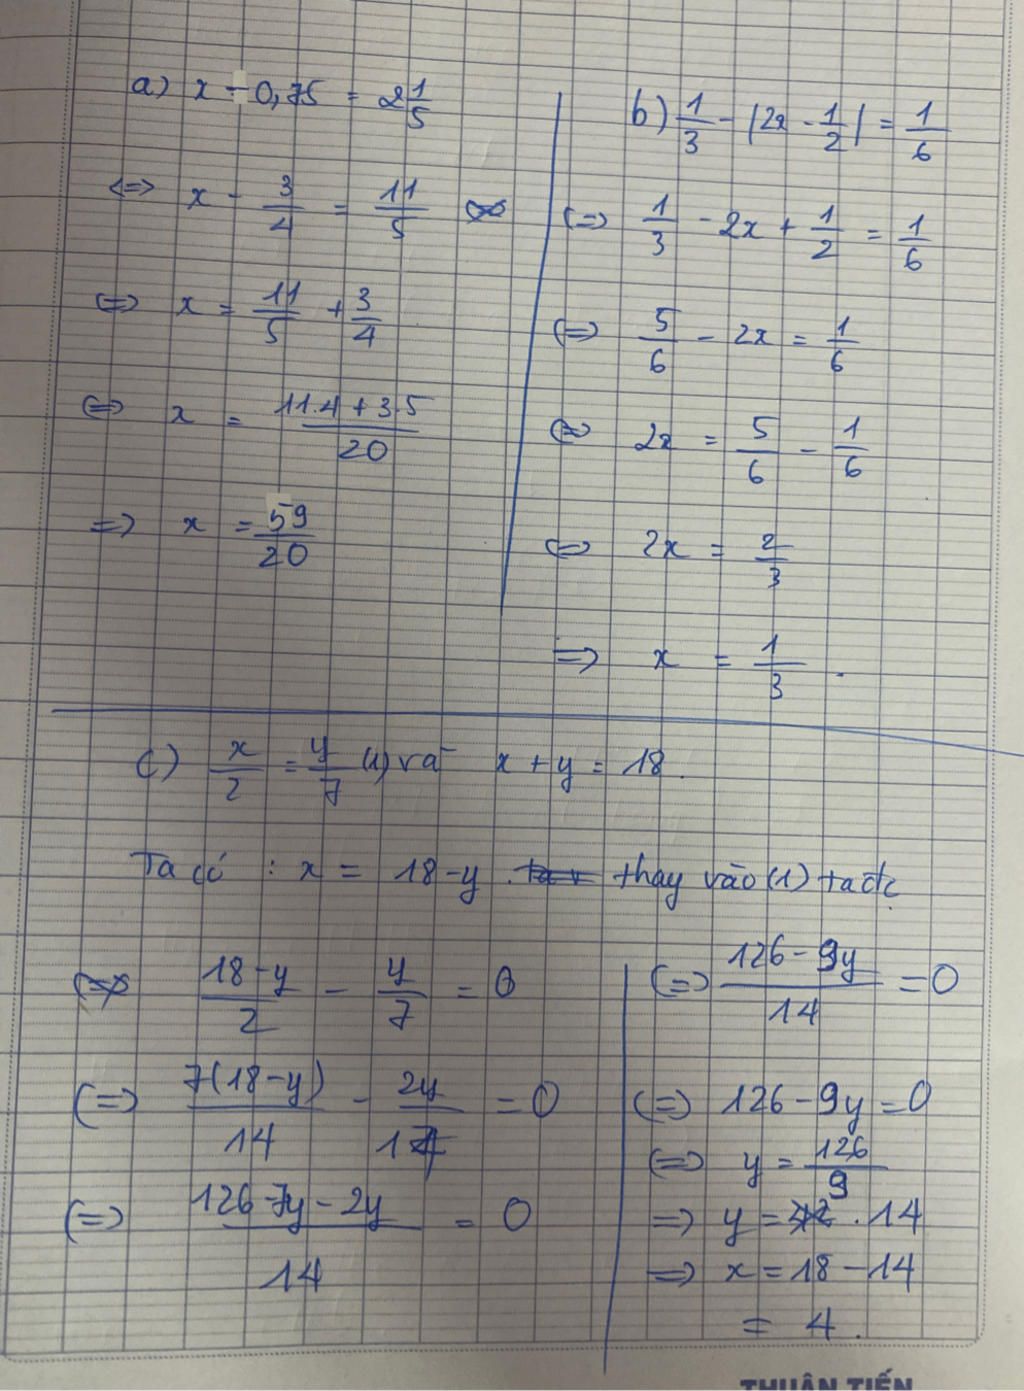 a) x - 0,75 = 2 1/5
<=> x - 3/4 = 11/5
<=> x = 11/5 + 3/4
<=> x = (11.4 + 3.5)/20
=> x = 59/20
b) 1/3 - |2x - 1/2| = 1/6
<=> 1/3 - 2x + 1/2 = 1/6
<=> 5/6 - 2x = 1/6
<=> 2x = 5/6 - 1/6
<=> 2x = 2/3
=> x = 1/3.
c) x/2 = y/7 (1) và x + y = 18.
Ta có : x = 18 - y. thay vào (1) ta đc
(18 - y)/2 - y/7 = 0
<=> 7(18 - y)/14 - 2y/14 = 0
<=> (126 - 7y - 2y)/14 = 0
<=> (126 - 9y)/14 = 0
<=> 126 - 9y = 0
<=> y = 126/9
=> y = 14
=> x = 18 - 14
= 4.
THUẬN TIẾN